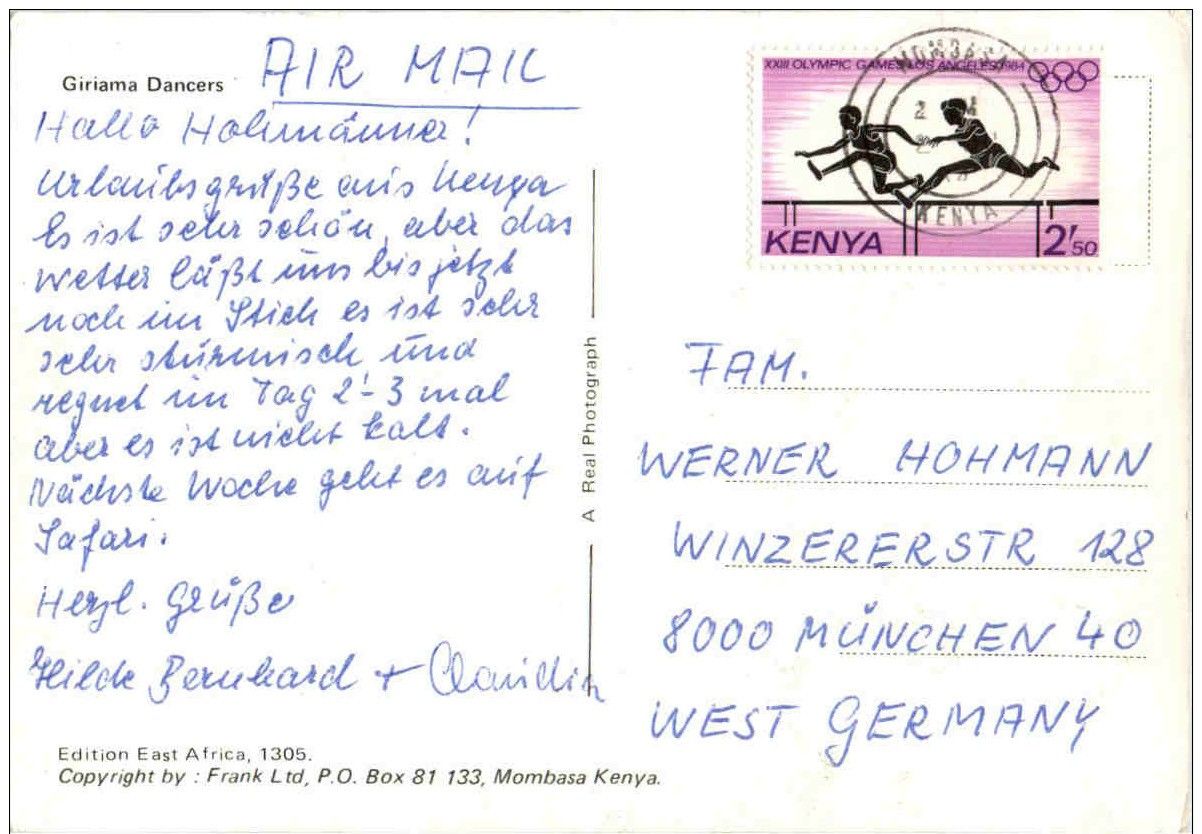 Giriama Dancers
AIR MAIL
Hallo Hohmänner!
Urlaubsgrüße aus Kenya
Es ist sehr schön, aber das
Wetter läßt uns bis jetzt
noch im Stich es ist sehr
sehr stürmisch und
regnet im Tag 2-3 mal
aber es ist nicht kalt.
Nächste Woche geht es auf
Safari.
Herzl. Grüße
Hilde Bernhard + Claudia
Edition East Africa, 1305.
Copyright by : Frank Ltd, P.O. Box 81 133, Mombasa Kenya.
A Real Photograph
XXIII OLYMPIC GAMES LOS ANGELES 1984
MOMBASA
KENYA
KENYA
2/50
FAM.
WERNER HOHMANN
WINZERERSTR 128
8000 MÜNCHEN 40
WEST GERMANY